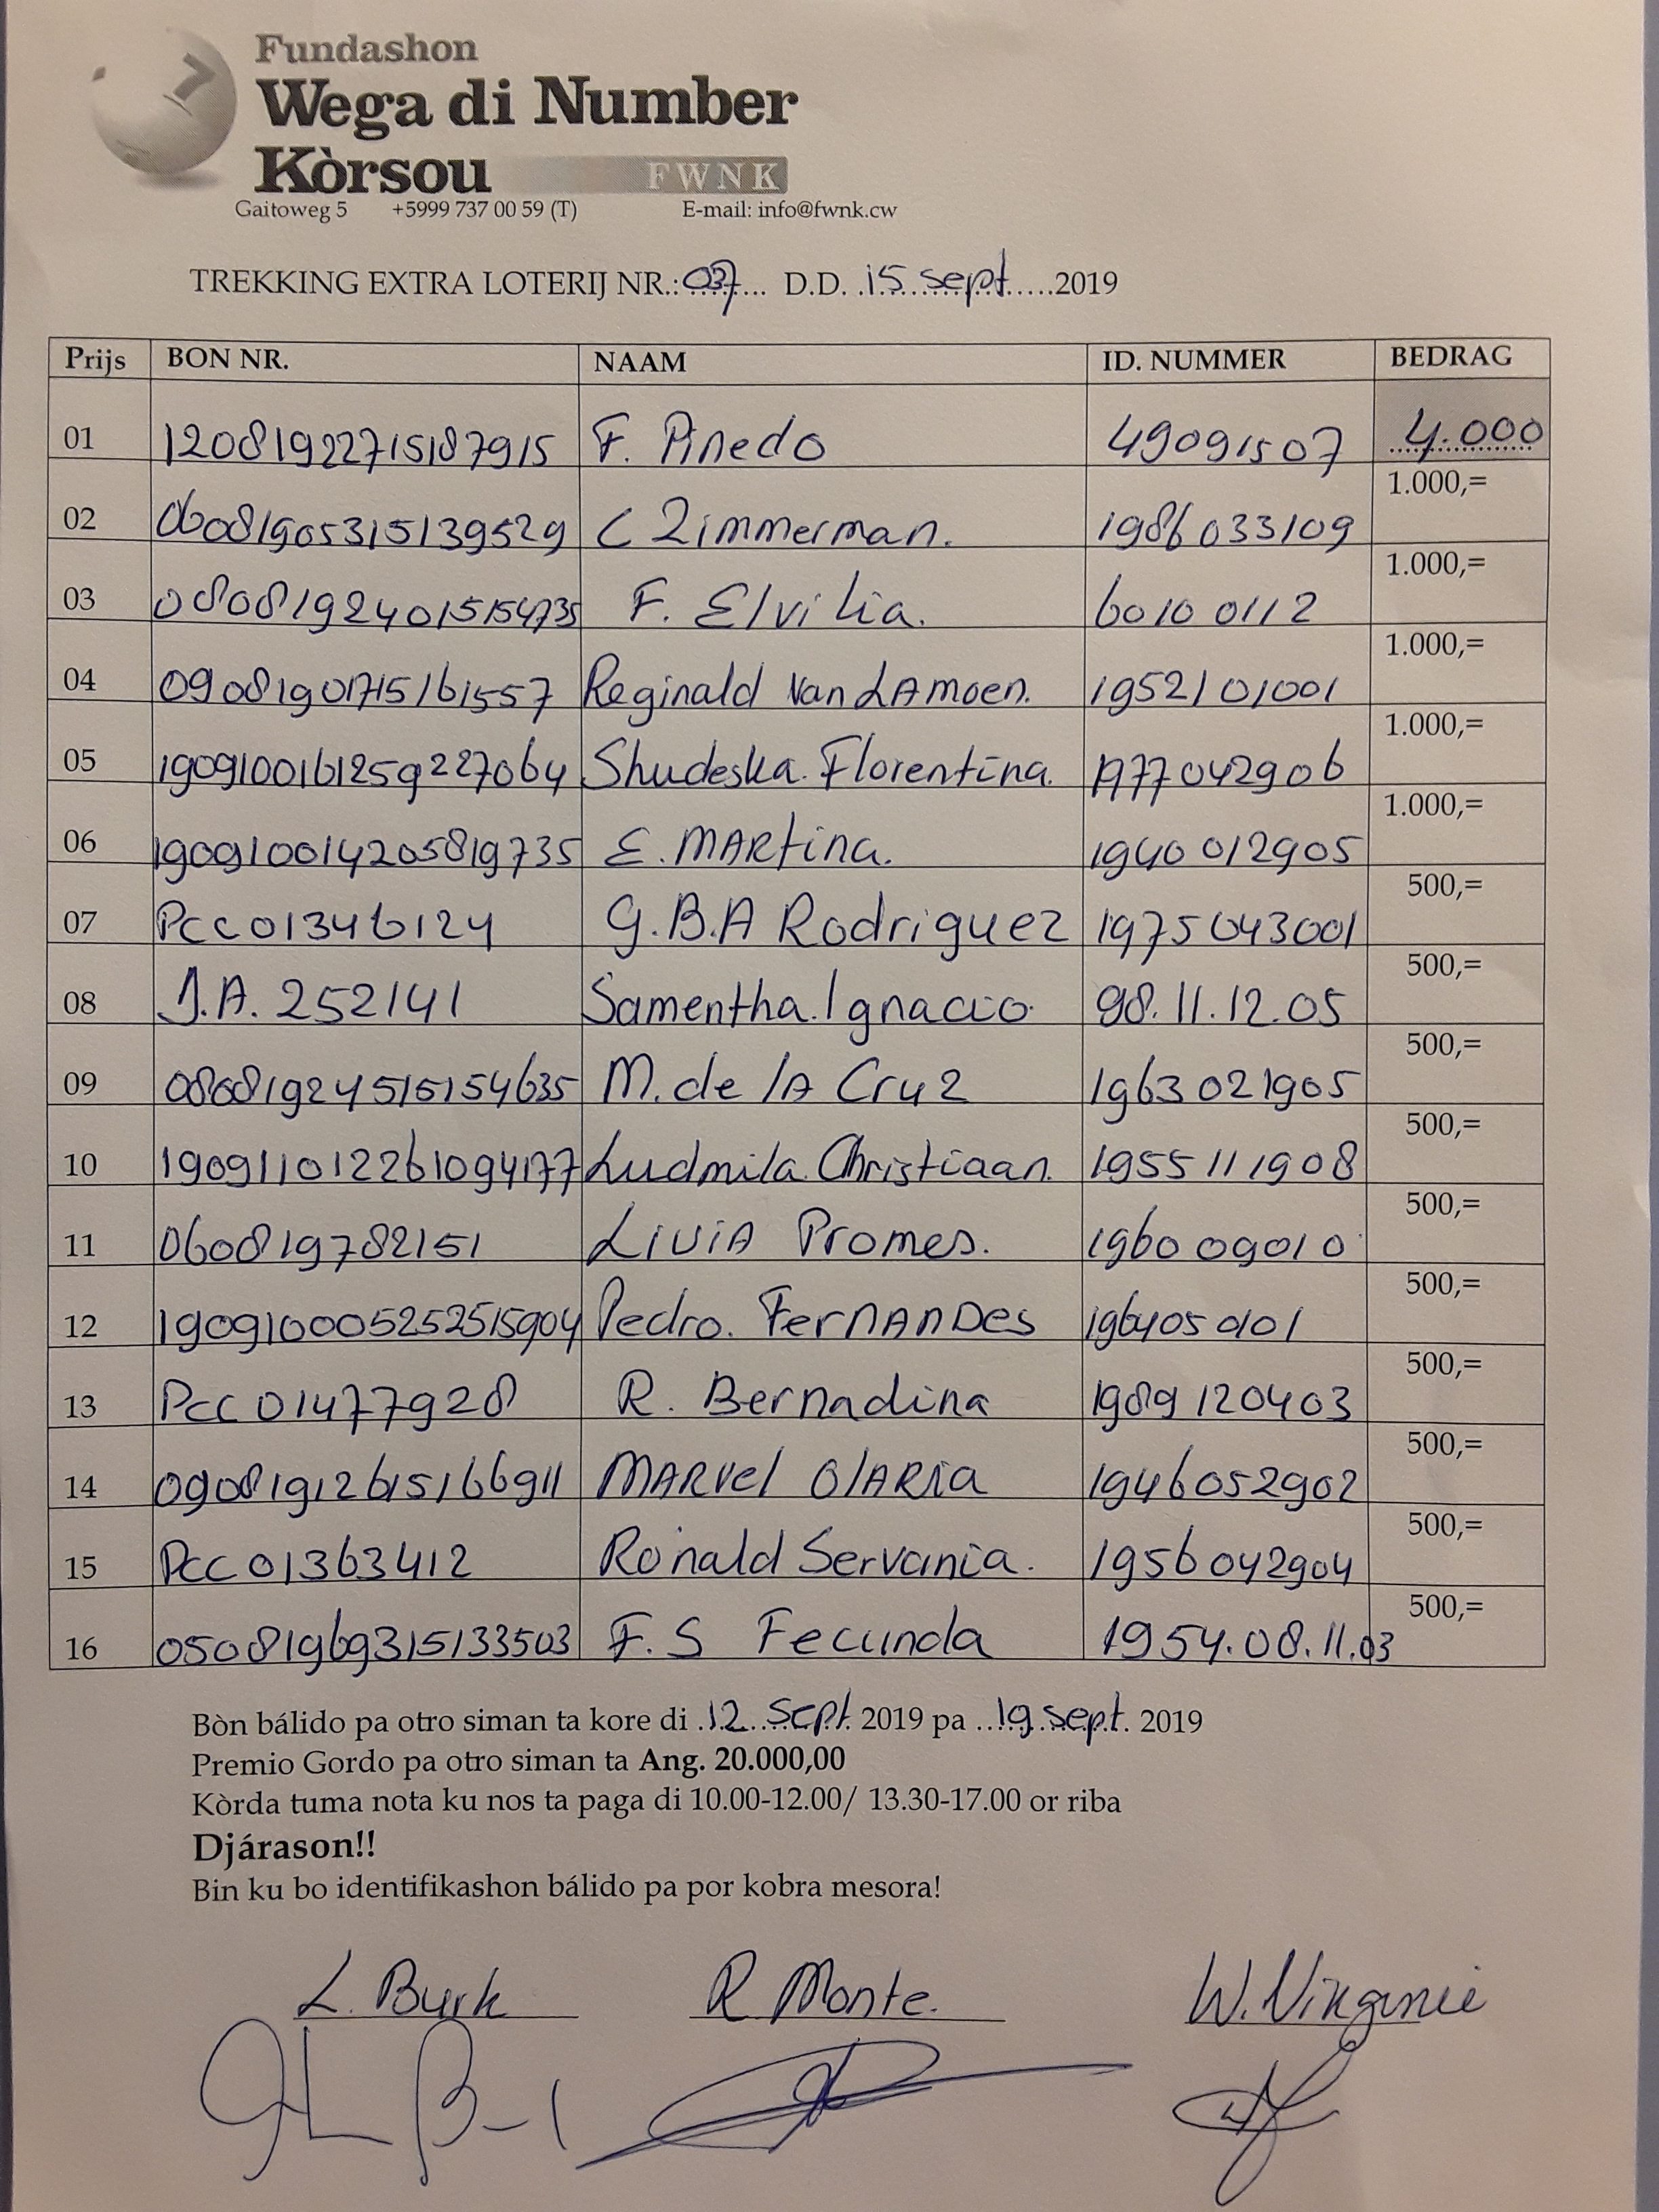 Fundashon
Wega di Number
Kòrsou FWNK
Gaitoweg 5 +5999 737 00 59 (T) E-mail: info@fwnk.cw
TREKKING EXTRA LOTERIJ NR.: 037 D.D. 15 sept 2019
Prijs BON NR. NAAM ID. NUMMER BEDRAG
01 12081922715187915 F. Pinedo 49091507 4.000
02 06081905315139529 C Zimmerman. 1986033109 1.000,=
03 08081924015154735 F. Elvilia. 60100112 1.000,=
04 09081901715161557 Reginald Van LAmoen. 1952101001 1.000,=
05 1909100161259227064 Shudeska Florentina. 1977042906 1.000,=
06 190910014205819735 E. MARtina. 1940012905 1.000,=
07 PCC01346124 G.B.A Rodriguez 1975043001 500,=
08 J.A. 252141 Samentha Ignacio 98.11.12.05 500,=
09 08081924515154635 M. de lA Cruz 1963021905 500,=
10 190911012261094177 Ludmila Christiaan. 1955111908 500,=
11 060819782151 LiviA Promes. 196009010 500,=
12 190910005252515904 Pedro. FernAnDes 500,=
13 PCC01477928 R. Bernadina 1989120403 500,=
14 09081912615166911 MARvel OlARia 1946052902 500,=
15 PCC01363412 Ronald Servania. 1956042904 500,=
16 05081969315133503 F.S Fecunda 1954.08.11.03 500,=
Bòn bálido pa otro siman ta kore di 12 sept. 2019 pa 19 sept. 2019
Premio Gordo pa otro siman ta Ang. 20.000,00
Kòrda tuma nota ku nos ta paga di 10.00-12.00/ 13.30-17.00 or riba
Djárason!!
Bin ku bo identifikashon bálido pa por kobra mesora!
L. Burk R Monte. W. Virginie